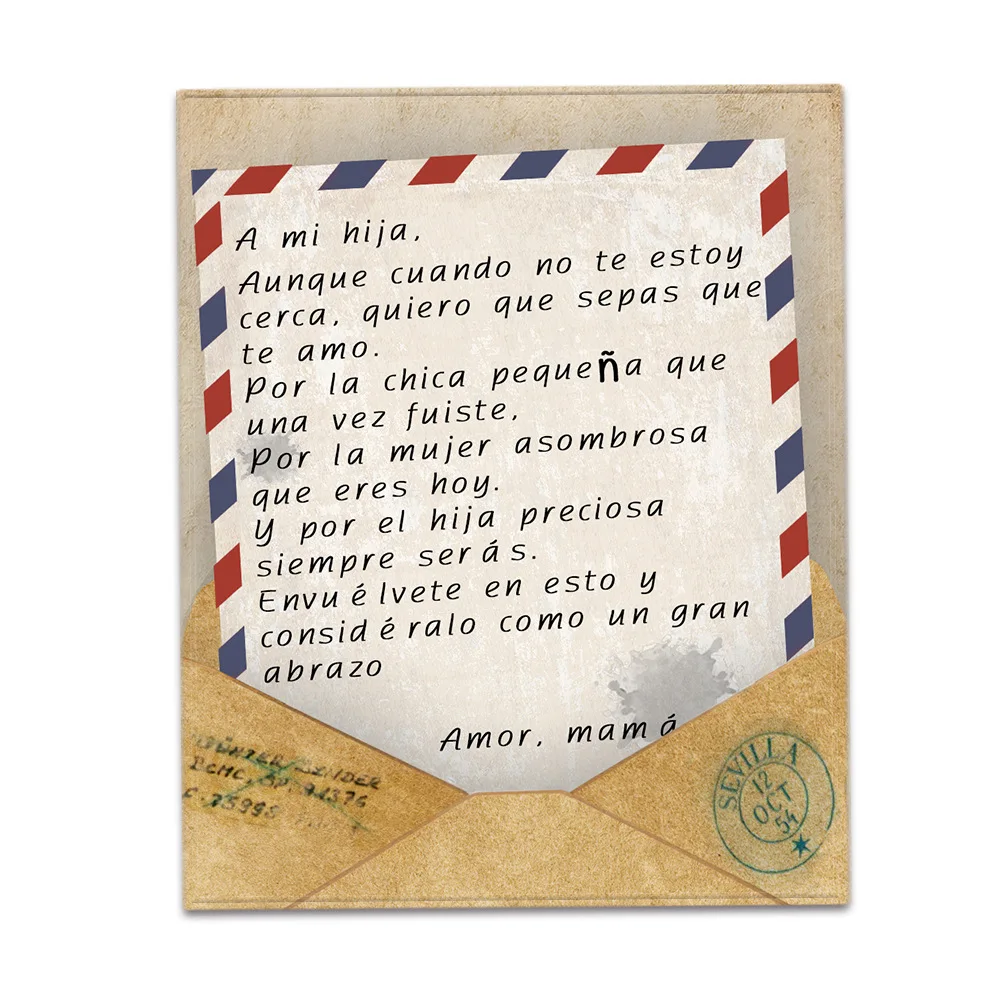 A mi hija,
Aunque cuando no te estoy
cerca, quiero que sepas que
te amo.
Por la chica pequeña que
una vez fuiste,
Por la mujer asombrosa
que eres hoy.
Y por el hija preciosa
siempre serás.
Envuélvete en esto y
considéralo como un gran
abrazo
Amor, mamá
SEVILLA
12
OCT
54